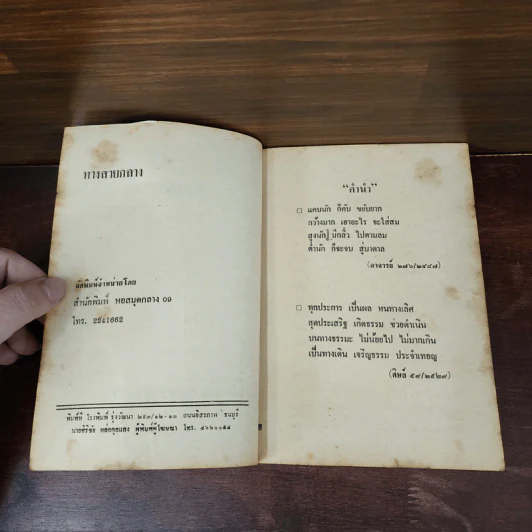 ทางสายกลาง
จัดพิมพ์จำหน่ายโดย
สำนักพิมพ์ หอสมุดกลาง 09
โทร. 2241662
พิมพ์ที่ โรงพิมพ์ รุ่งวัฒนา ๒๙๓/๑๒-๑๓ ถนนอิสรภาพ ธนบุรี
ผู้พิมพ์ผู้โฆษณา โทร.
“คำนำ”
แคบนัก ก็คับ ขยับยาก
กว้างมาก เอาอะไร จะใส่สม
สูงนัก มักลิ่ว ไปตามลม
ต่ำนัก ก็จะจม สู่บาดาล
(อาจารย์ ๒๗๖/๒๔๘๗)
ทุกประการ เป็นผล หนทางเลิศ
สุดประเสริฐ เกิดธรรม ช่วยดำเนิน
บนทางธรรมะ ไม่น้อยไป ไม่มากเกิน
เป็นทางเดิน เจริญธรรม ประจำเทอญ
(ศิษย์ ๕๙/๒๕๒๗)